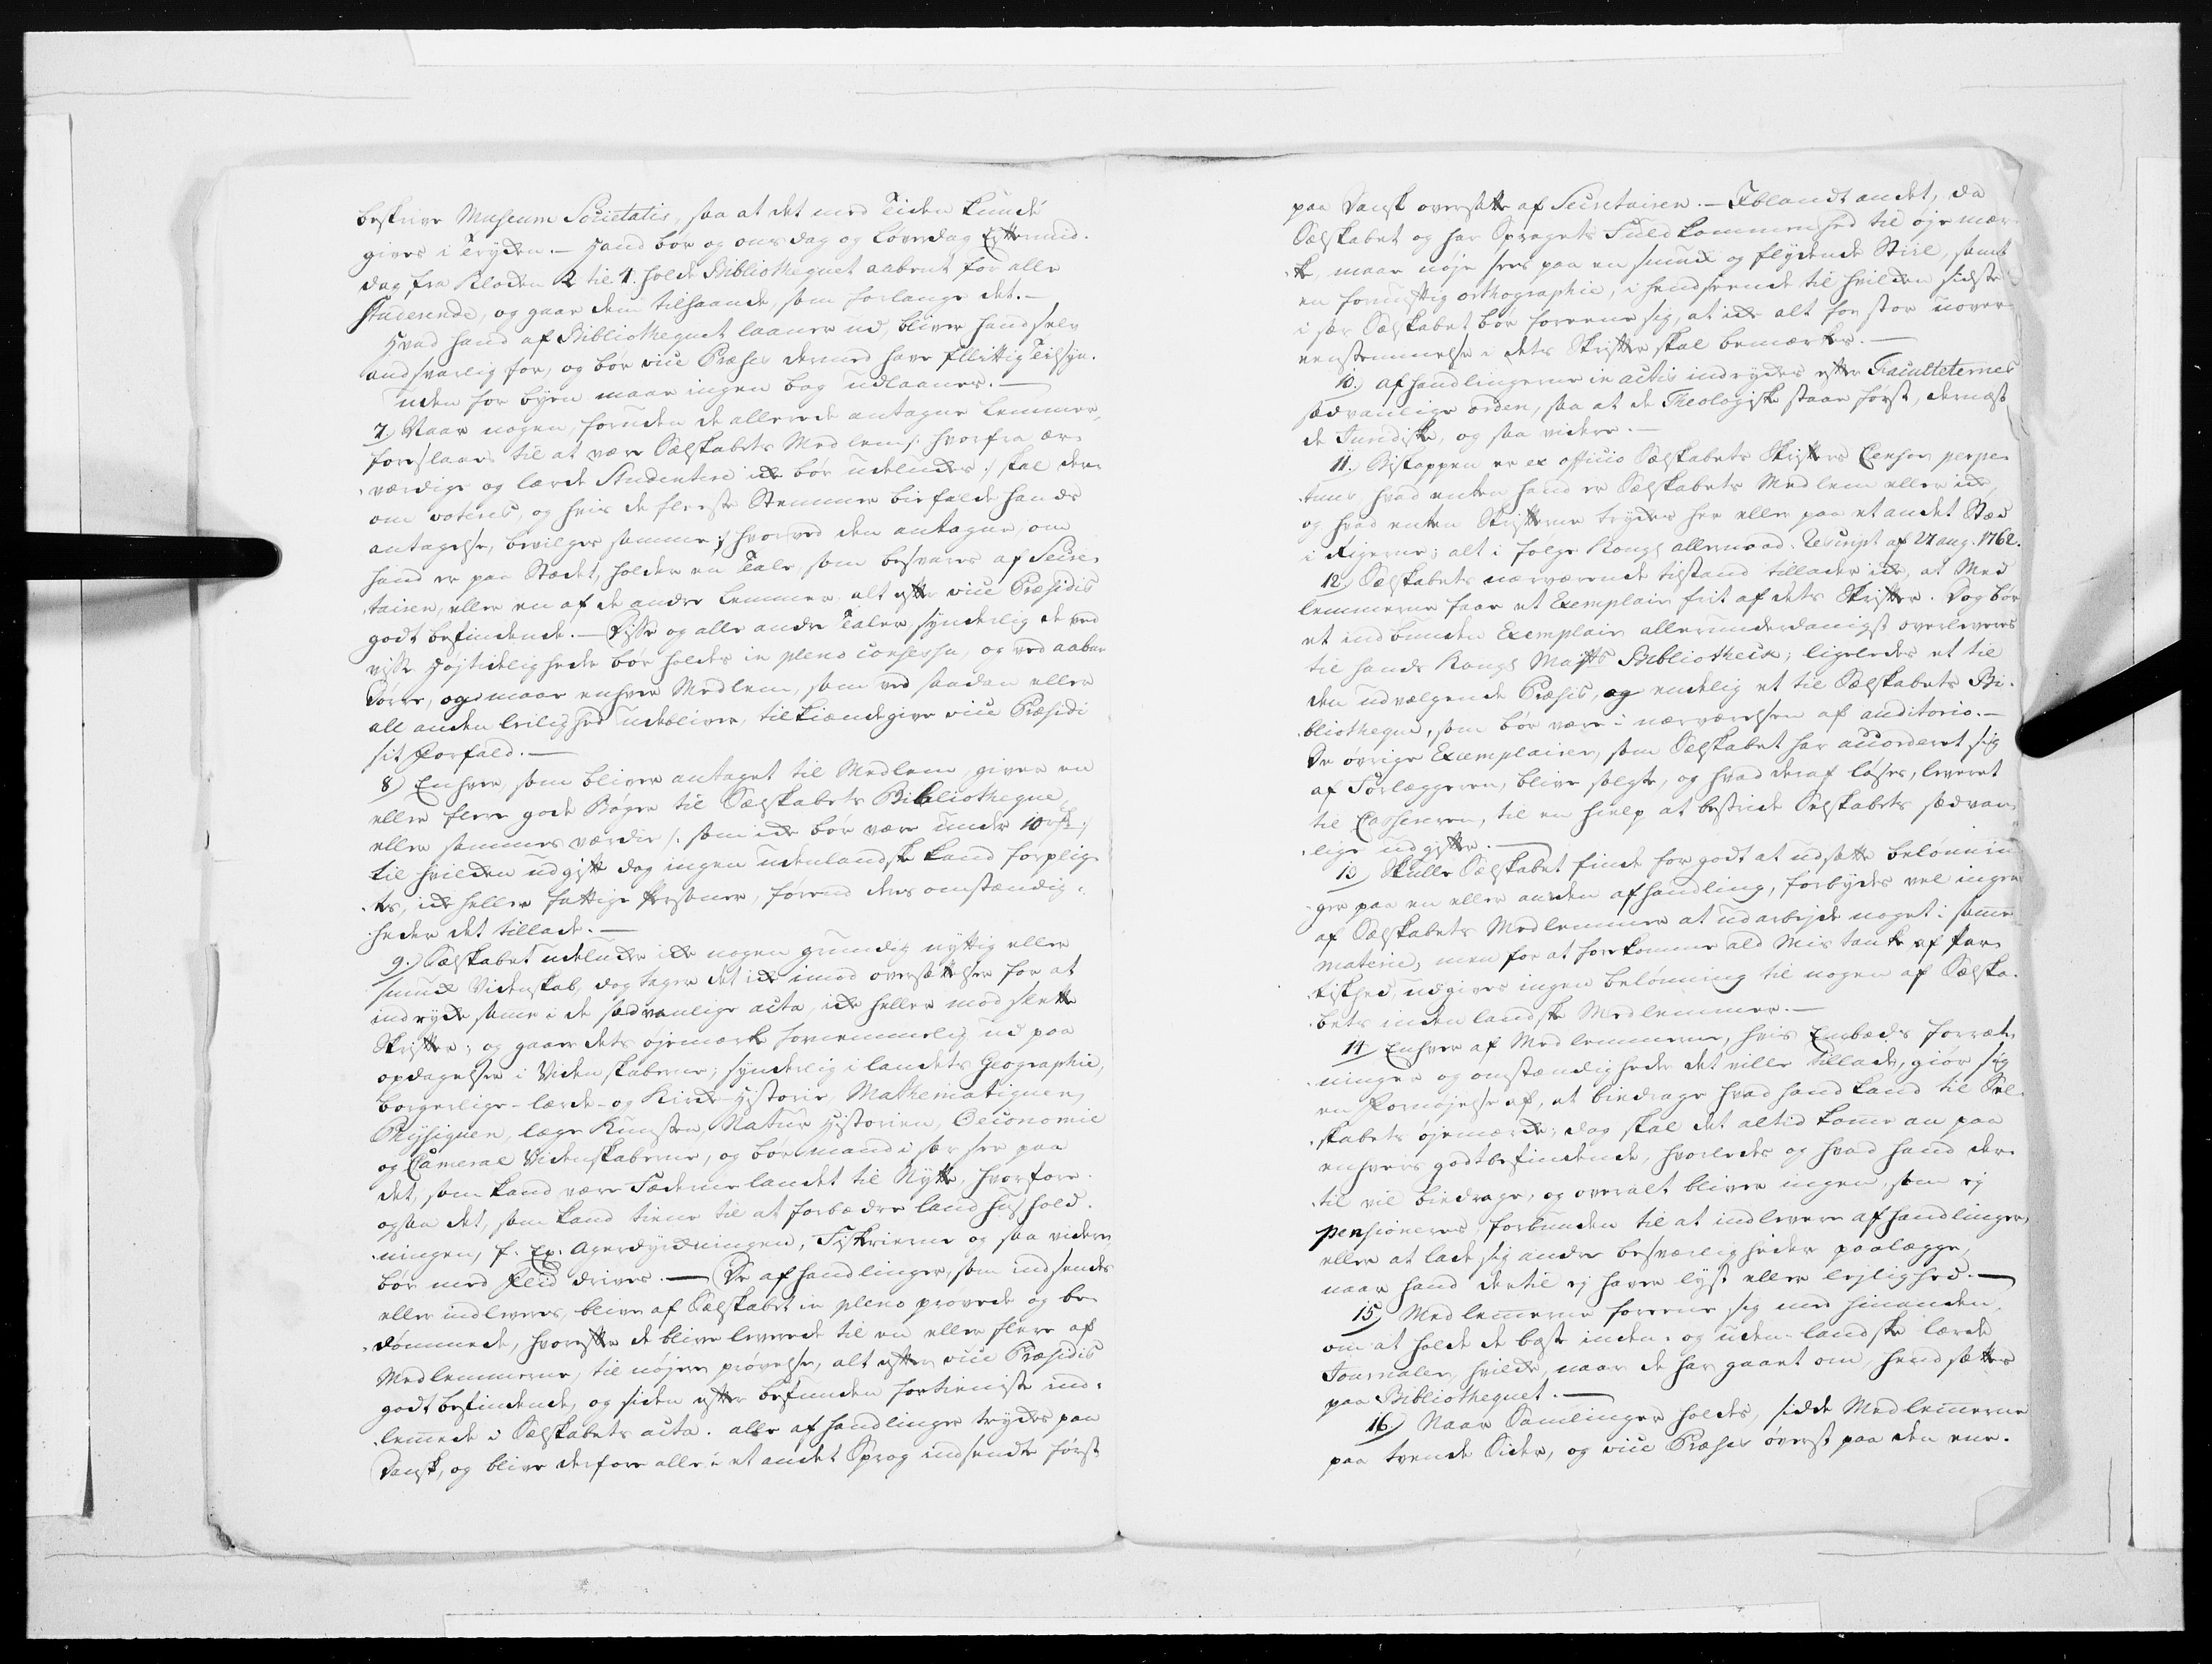 beskrive Museum Societatis, saa at det med Tiden kunde
gives i Trykken. — Hand bør og onsdag og Løverdag Eftermid-
dag fra Klokken 2 til 4. holde Bibliotheqvet aabent for alle
Studerende, og gaae dem tilhaande, som forlange det. —
Hvad hand af Bibliotheqvet laaner ud, bliver hand selv
andsvarlig for, og bør vice Præses dermed have flittig Tilsyn.
Uden for byen maae ingen bog udlaanes. —
7) Naar nogen, foruden de allerede antagne Lemmer,
foreslaaes til at være Selskabets Medlem /: hvorfra ær-
værdige og lærde Studentere ikke bør udelukkes :/ skal der-
om voteres, og hvis de fleeste Stemmer biefalde hands
antagelse, bevilges samme; hvorved den antagne, om
hand er paa Stædet, holder en Tale, som besvares af Secre-
tairen, eller en af de andre Lemmer, alt efter vice Præsidis
godt befindende. — Disse og alle andre Taler, synderlig de ved
visse Højtideligheder bør holdes in pleno consessu, og ved aabne
Dørre, og maae enhver Medlem, som ved saadan eller
all anden leilighed udebliver, tilkiendegive vice Præsidi
sit Forfald. —
8) Enhver, som bliver antaget til Medlem, giver en
eller flere gode Bøger til Selskabets Bibliotheqve,
eller sammes værdie /: som ikke bør være under 10 rdr :/
til hvilken udgift dog ingen udenlandske kand forplig-
tes, ikke heller fattige Personer, førend deres omstændig-
heder det tillade. —
9.) Selskabet udelukker ikke nogen grundig nyttig eller
smuk Videnskab, dog tager det ikke imod oversættelser for at
indrykke samme i de sædvanlige acta, ikke heller mod slette
Skrifter; og gaaer dets øjemærke fornemmelig ud paa
opdagelser i Videnskaberne; synderlig i landets Geographie,
borgerlige- lærde- og Kirke-Historie, Mathematiqven,
Physiqven, læge Kunsten, Natur Historien, Oeconomie
og Cameral Videnskaberne, og bør mand i sær see paa
det, som kand være Fæderne landet til Nytte, hvorfore
ogsaa det, som kand tiene til at forbædre land huushold-
ningen, f. Ex. Agerdyrkningen, Fiskerierne og saa videre
bør med Flid drives. — De afhandlinger, som indsendes
eller indleveres, blive af Selskabet in pleno prøvede og be-
dømmede, hvorefter de blive leverede til en eller flere af
Medlemmerne, til nøjere prøvelse, alt efter vice Præsidis
godt befindende, og siden efter befunden fortieniste ind-
lemmede i Selskabets acta. alle afhandlinger trykkes paa
Dansk, og blive derfore alle i et andet Sprog indsendte først
paa Dansk oversatte af Secretairen. — Iblandt andet, da
Selskabet og har Sprogets Fuldkommenhed til øjemær-
ke, maae nøje sees paa en smuk og flydende Stiil, samt
en fornuftig orthographie, i henseende til hvilken sidste
i sær Selskabet bør foreene sig, at ikke alt for stor uover-
eenstemmelse i dets Skrifter skal bemærkes. —
10.) afhandlingerne in actis indrykkes efter Faculteternes
sædvanlige orden, saa at de Theologiske staae først, dernæst
de Juridiske, og saa videre. —
11.) Biskoppen er ex officio Selskabets Skrifters Censor perpe-
tuus, hvad enten hand er Selskabets Medlem eller ikke,
og hvad enten Skrifterne trykkes her eller paa et andet Stæd
i Rigerne; alt i følge Kongl. allernaad. Rescript af 27 aug. 1762.
12.) Selskabets nærværende tilstand tillader ikke, at Med-
lemmerne faae et Exemplair frit af dets Skrifter. Dog bør
et indbunden Exemplair allerunderdanigst overleveres
til hands Kongl. Maits Bibliotheck; ligeledes et til
den udvælgende Præsis, og endelig et til Selskabets Bi-
bliotheqve, som bør være i nærværelsen af auditorio. —
De øvrige Exemplairer, som Selskabet har accorderet sig
af Forlæggeren, blive solgte, og hvad deraf løses, leveret
til Cassereren, til en hielp at bestride Selskabets sædvan-
lige udgifter. —
13) Skulle Selskabet finde for godt at udsætte belønnin-
ger paa en eller anden afhandling, forbydes vel ingen
af Selskabets Medlemmer at udarbejde noget i samme
materie, men for at forekomme ald Mistanke af par-
tiskhed, udgives ingen belønning til nogen af Selska-
bets indenlandske Medlemmer. —
14) Enhver af Medlemmerne, hvis Embeds forret-
ninger og omstændigheder det ville tillade, giør sig
en Fornøjelse af, at biedrage hvad hand kand til Sel-
skabets øjemærke; dog skal det altid komme an paa
enhvers godtbefindende, hvorledes og hvad hand der-
til vil biedrage, og overalt bliver ingen, som ej
pensioneres forbunden til at indlevere afhandlinger,
eller at lade sig andre besværligheder paalægge,
naar hand dertil ej haver lyst eller lejlighed. —
15) Medlemmerne foreene sig med hinanden,
om at holde de beste inden- og uden-landske lærde
Journaler, hvilke, naar de har gaaet om, hensættes
paa Bibliotheqvet. —
16) Naar Samlinger holdes, sidde Medlemmerne
paa tvende Sider, og vice Præses øverst paa den ene.